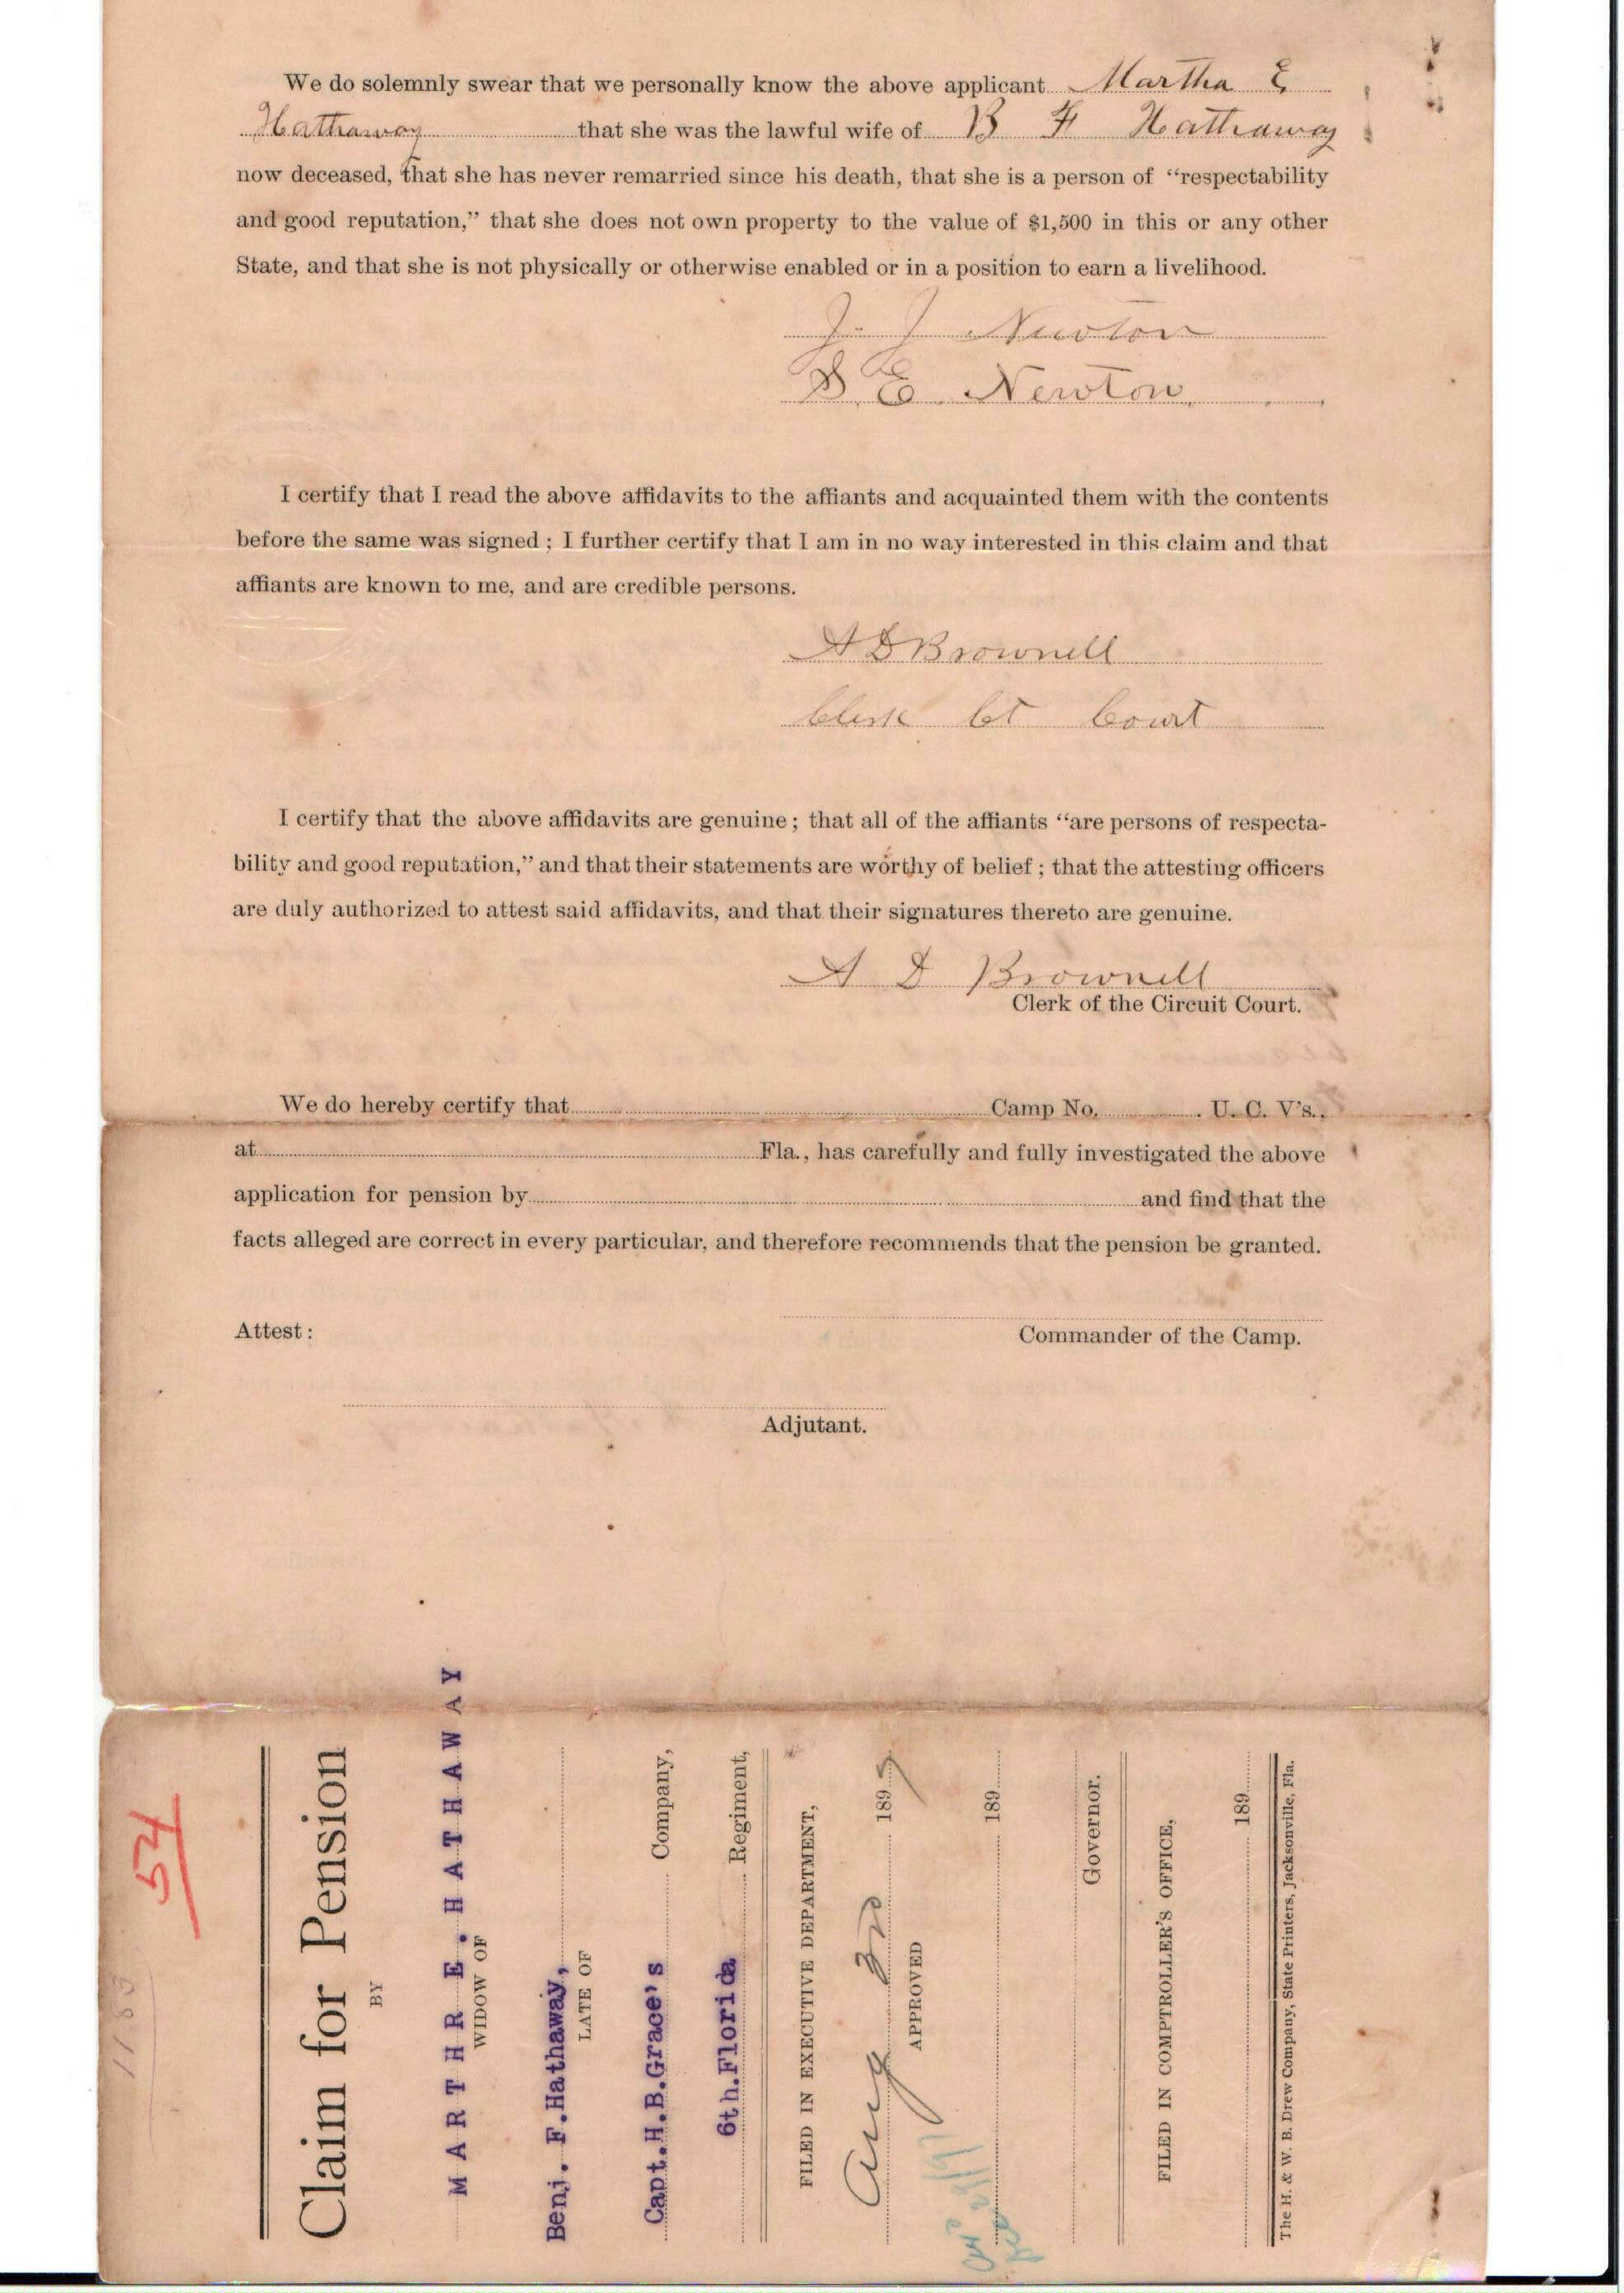 We do solemnly swear that we personally know the above applicant Martha E
Hathaway that she was the lawful wife of B F Hathaway
now deceased, that she has never remarried since his death, that she is a person of “respectability
and good reputation,” that she does not own property to the value of $1,500 in this or any other
State, and that she is not physically or otherwise enabled or in a position to earn a livelihood.
J. J Newton
S E Newton
I certify that I read the above affidavits to the affiants and acquainted them with the contents
before the same was signed; I further certify that I am in no way interested in this claim and that
affiants are known to me, and are credible persons.
A D Brownell
Clerk Ct Court
I certify that the above affidavits are genuine; that all of the affiants “are persons of respecta-
bility and good reputation,” and that their statements are worthy of belief; that the attesting officers
are duly authorized to attest said affidavits, and that their signatures thereto are genuine.
A D Brownell
Clerk of the Circuit Court.
We do hereby certify that Camp No. U. C. V's.,
at Fla., has carefully and fully investigated the above
application for pension by and find that the
facts alleged are correct in every particular, and therefore recommends that the pension be granted.
Attest:
Commander of the Camp.
Adjutant.
1183
54
Claim for Pension
BY
MARTHR E. HATHAWAY
WIDOW OF
Benj. F.Hathaway,
LATE OF
Capt.H.B.Grace's Company,
6th.Florida Regiment,
FILED IN EXECUTIVE DEPARTMENT,
Aug 3rd 1897
APPROVED
189
Governor.
FILED IN COMPTROLLER'S OFFICE,
189
The H. & W. B. Drew Company, State Printers, Jacksonville, Fla.